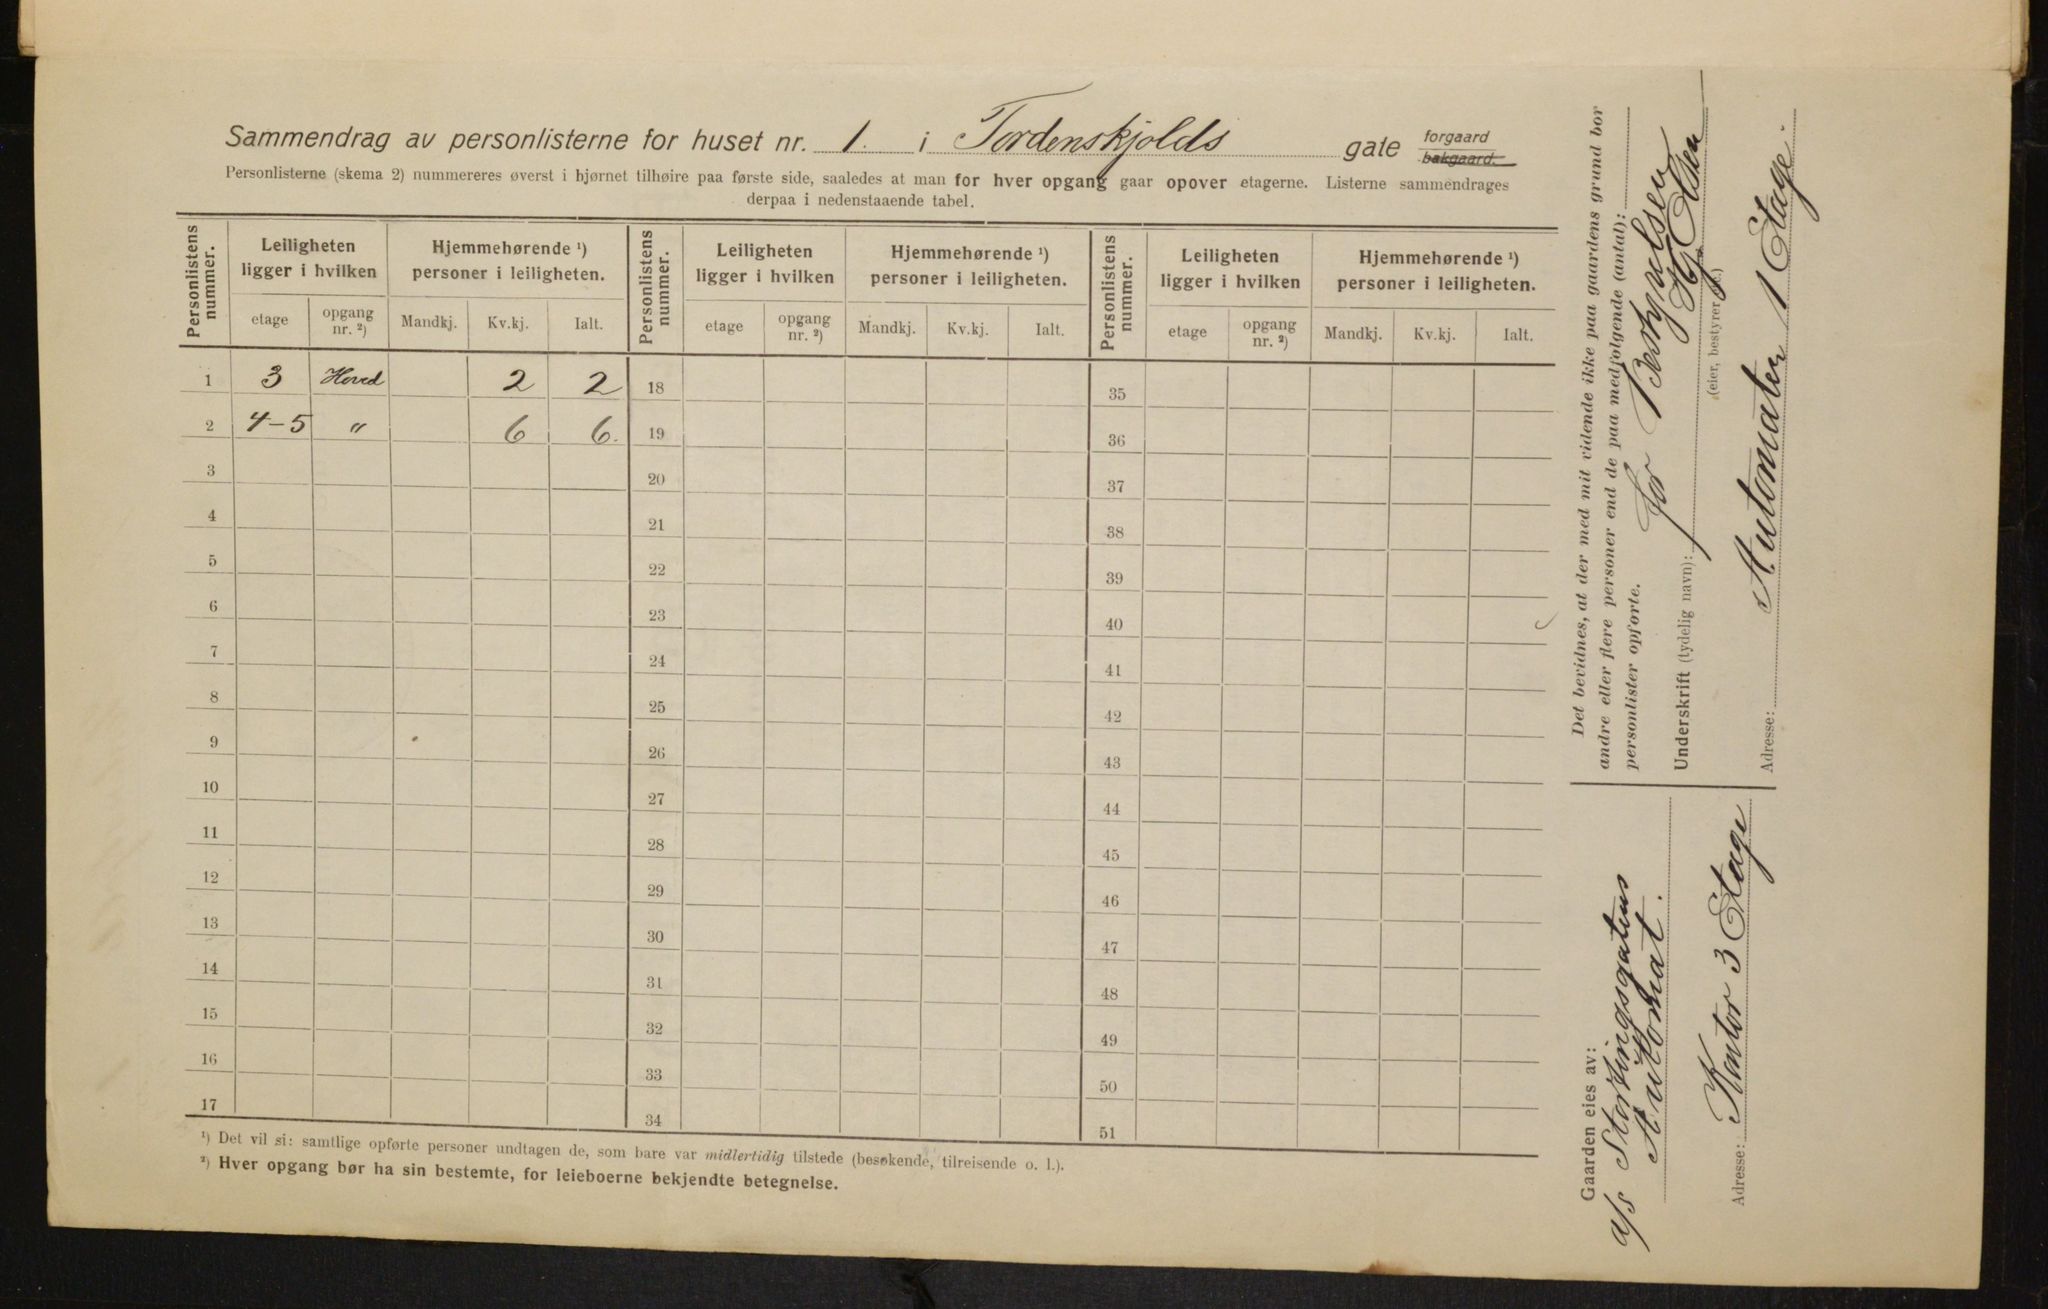 Sammendrag av personlisterne for huset nr. 1. i Tordenskjolds gate forgaard bakgaard.
Personlisterne (skema 2) nummereres øverst i hjørnet tilhøire paa første side, saaledes at man for hver opgang gaar opover etagerne. Listerne sammendrages
derpaa i nedenstaaende tabel.
Personlistens nummer. Leiligheten ligger i hvilken Hjemmehørende ¹) personer i leiligheten. Personlistens nummer. Leiligheten ligger i hvilken Hjemmehørende ¹) personer i leiligheten. Personlistens nummer. Leiligheten ligger i hvilken Hjemmehørende ¹) personer i leiligheten.
etage opgang nr. ²) Mandkj. Kv.kj. Ialt. etage opgang nr. ²) Mandkj. Kv.kj. Ialt. etage opgang nr. ²) Mandkj. Kv.kj. Ialt.
1 3 Hoved 2 2 18 35
2 4-5 " 6 6. 19 36
3 20 37
4 21 38
5 22 39
6 23 40
7 24 41
8 25 42
9 26 43
10 27 44
11 28 45
12 29 46
13 30 47
14 31 48
15 32 49
16 33 50
17 34 51
¹) Det vil si: samtlige opførte personer undtagen de, som bare var midlertidig tilstede (besøkende, tilreisende o. l.).
²) Hver opgang bør ha sin bestemte, for leieboerne bekjendte betegnelse.
Det bevidnes, at der med mit vidende ikke paa gaardens grund bor
andre eller flere personer end de paa medfølgende (antal):
personlister opførte.
for
Underskrift (tydelig navn): Olsen
(eier, bestyrer e.)
Automaten 1 Etage.
Adresse:
Gaarden eies av:
a/s Stortingsgatens
Automat.
Kontor 3 Etage
Adresse: